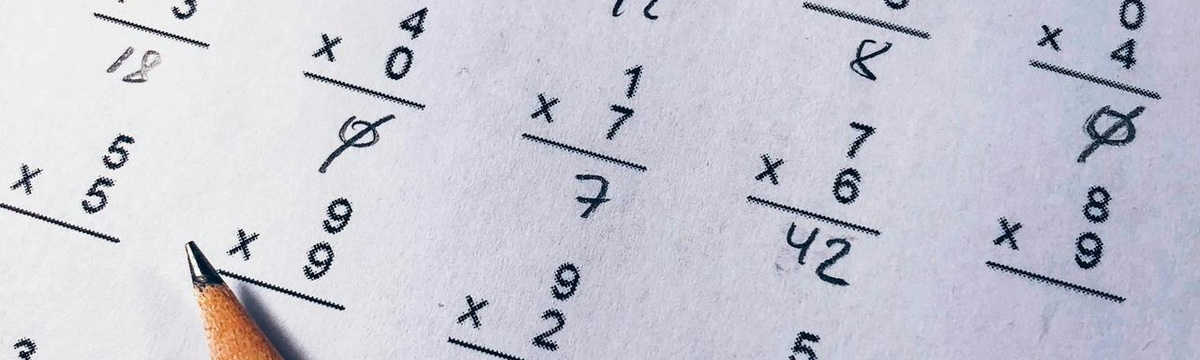 3
18
x 4
0
0
x 1
7
7
8
0
x 4
0
x 5
5
x 9
9
x 9
2
x 7
6
42
x 8
9
5